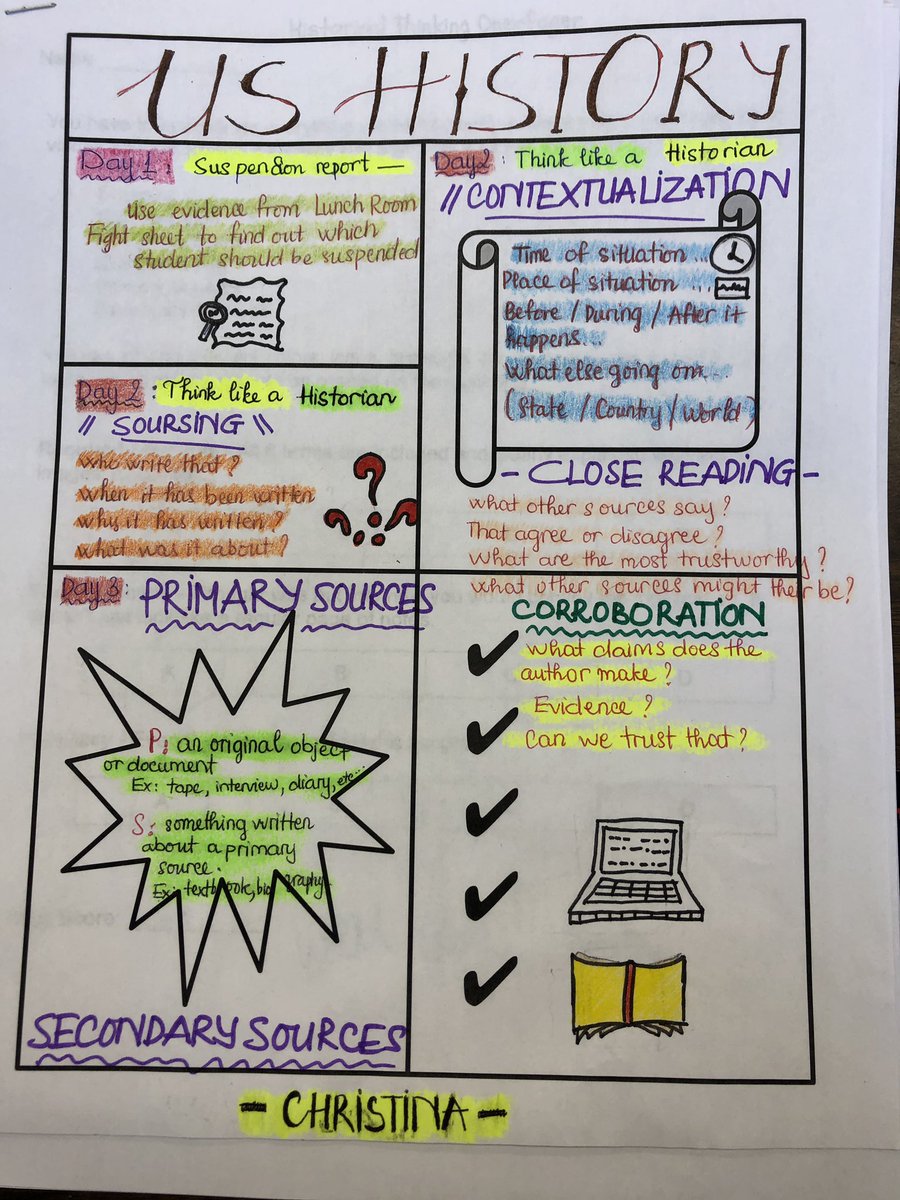 US HISTORY
Day 1 : Suspension report —
Use evidence from Lunch Room
Fight sheet to find out which
student should be suspended
Day 2 : Think like a Historian
// SOURSING \\
who write that ?
when it has been written
why it has written ?
what was it about ?
Day 2 : Think like a Historian
// CONTEXTUALIZATION
Time of situation ...
Place of situation ...
Before / During / After it
happens ...
what else going on ...
( State / Country / world )
- CLOSE READING -
what other sources say ?
That agree or disagree ?
What are the most trustworthy ?
what other sources might their be ?
Day 3 : PRIMARY SOURCES
P: an original object
or document
Ex: tape, interview, diary, etc...
S: something written
about a primary
source.
Ex: textbook, biography
SECONDARY SOURCES
CORROBORATION
What claims does the
author make ?
Evidence ?
Can we trust that ?
- CHRISTINA -